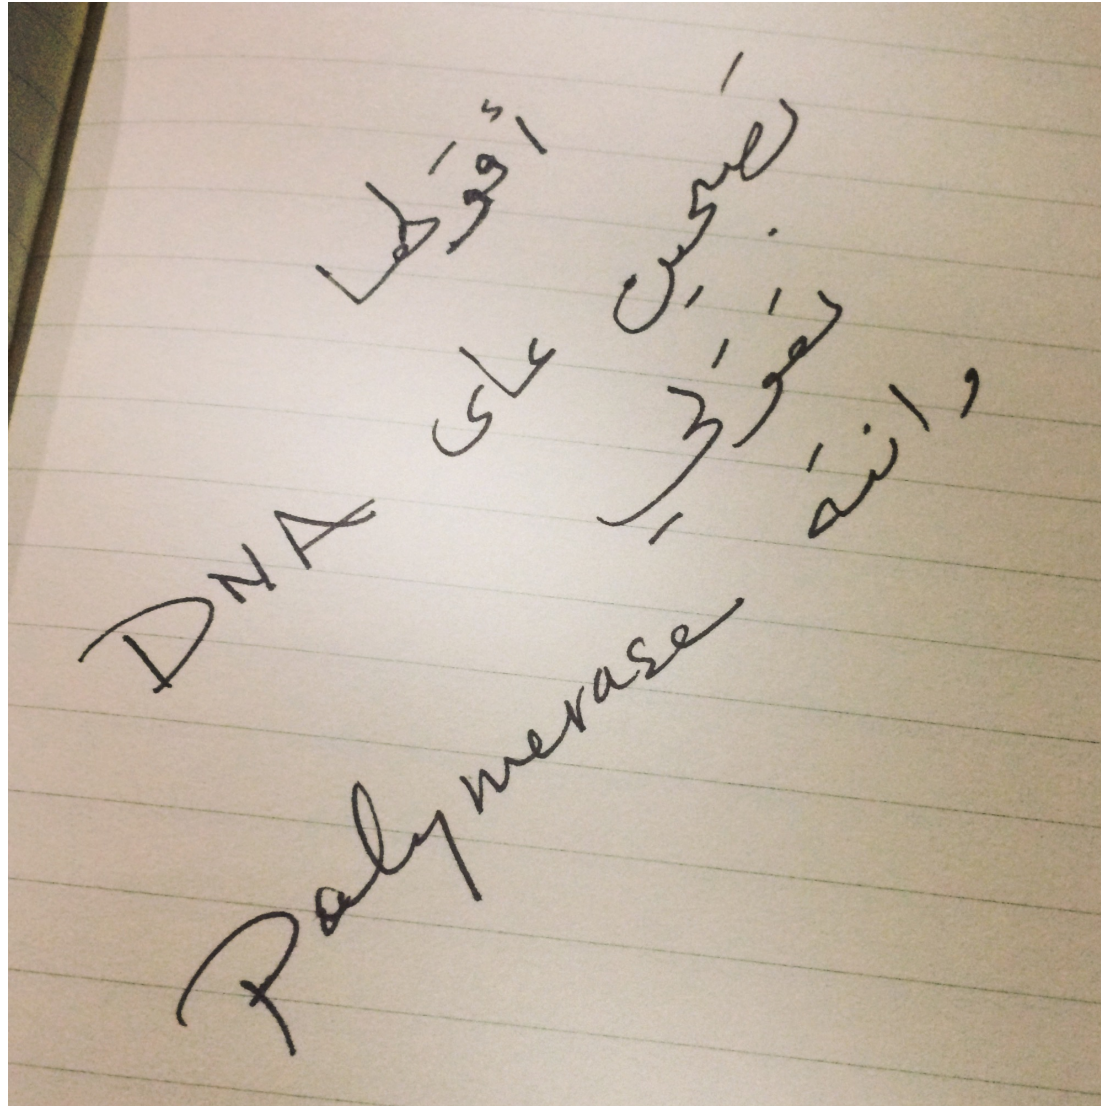 أقولها
تصبحين على DNA
تقولي
وانته Polymerase